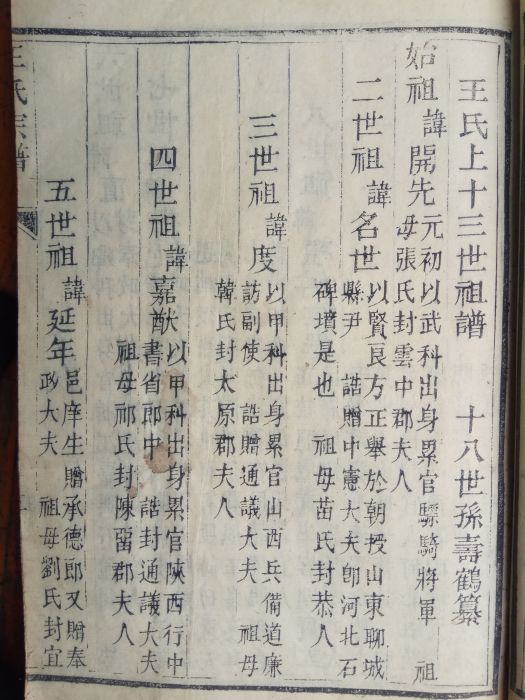 王氏上十三世祖譜 十八世孫壽鶴纂
始祖諱開先元初以武科出身累官驃騎將軍 祖
母張氏封雲中郡夫人
二世祖諱名世以賢良方正舉於朝授山東聊城
縣尹 誥贈中憲大夫卽河北石
碑墳是也 祖母苗氏封恭人
三世祖諱度以甲科出身累官山西兵備道廉
訪副使 誥贈通議大夫 祖母
韓氏封太原郡夫人
四世祖諱嘉猷以甲科出身累官陝西行中
書省郎中 誥封通議大夫
祖母祁氏封陳留郡夫人
五世祖諱延年邑庠生贈承德郎又贈奉
政大夫 祖母劉氏封宜
王氏宗譜